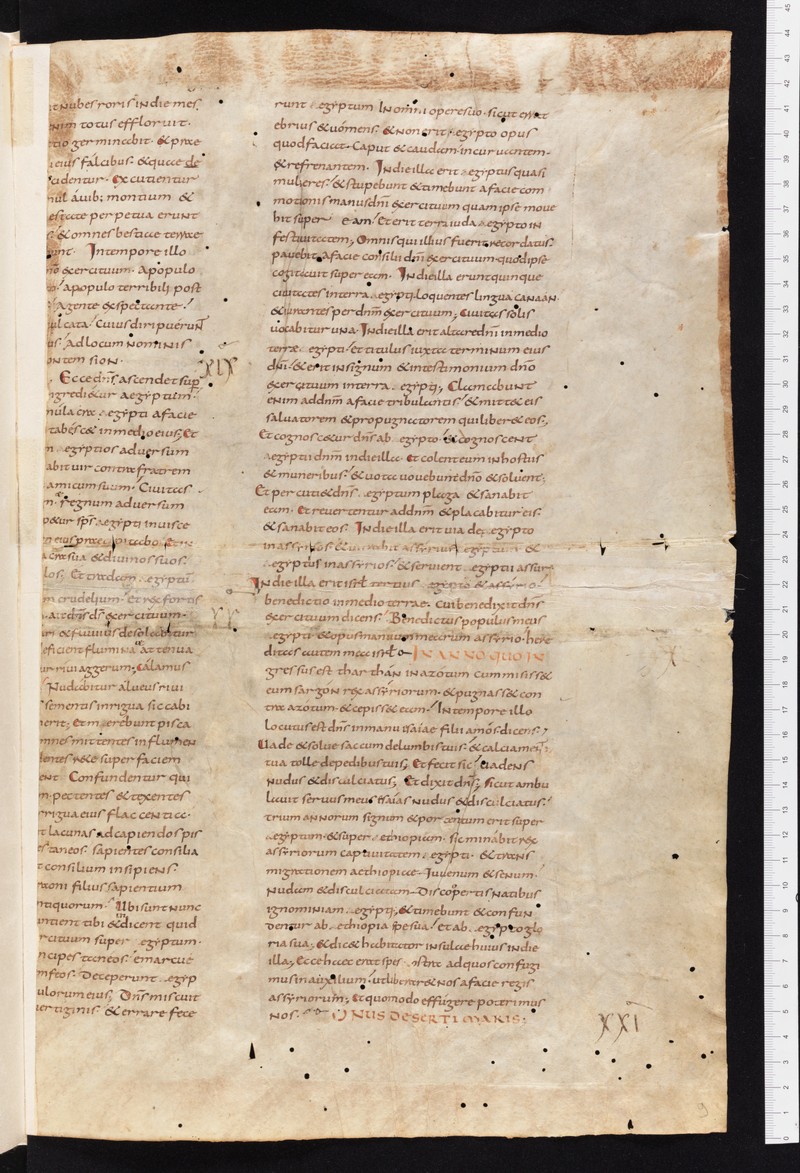 et nubes roris in die mes
totus effloruit.
germinabit. & prae
eius falcibus. & quae de
cidentur. Excutientur
auib; montium &
perpetua erunt
& omnes bestiae terrae
Intempore illo
exercituum. Apopulo
Apopulo terribili post
Agente & spectante
cuius diripuerunt
Adlocum nominis
ontem sion.
XIX
Ecce dns ascendet sup
ingredi&ur aegyptum.
aegypti afacie
inmedio eius; Et
aegyptios aduersum
abit uir contra fratrem
amicum suum. Ciuitas
regnum aduersum
sps aegypti inuisce
& diuinos suos.
crudelium. Et rex fortis
dns ds exercituum.
& fluuius desolabitur
eficient flumina attenua
riui aggerum; Calamus
Nudabitur alueus riui
sementis inrigua siccabi
Et merebunt pisca
mittentes influmen
rete super faciem
Confundentur qui
pectentes & texentes
lacunas adcapiendos pis
taneos. sapientes consilia
consilium insipiens.
filius sapientium
antiquorum. Ubi sunt nunc
tibi & dicent quid
super aegyptum.
ncipes taneos emarcue
Deceperunt aegyp
ulorum eius. Dns miscuit
uertiginis. & errare fece
runt aegyptum Inomni opere suo. sicut errat
ebrius & uomens. & non erit aegypto opus
quod faciat. Caput & caudam. incuruantem.
& refrenantem. Indie illa erit aegyptus quasi
mulieres. & stupebunt & timebunt afacie com
motionis manus dni exercituum quam ipse moue
bit super eam. Et erit terra iuda aegypto in
festiuitatem; Omnis qui illius fuerit recordatus.
pauebit afacie consilii dni exercituum. quod ipse
cogitauit super eam. Indie illa erunt quinque
ciuitates interra aegypti loquentes lingua canaan.
& iurantes per dnm exercituum; Ciuitas solis
uocabitur una. Indie illa erit altare dni inmedio
terrae aegypti. Et titulus iuxta terminum eius
dni. & erit in signum & intestimonium dno
exercituum interra aegypti; Clamabunt
enim ad dnm afacie tribulantis. & mittet eis
saluatorem & propugnatorem qui liberet eos;
Et cognoscetur dns ab aegypto. & cognoscent
aegyptii dnm indie illa. Et colent eum inhostiis
& muneribus. & uota uouebunt dno & soluent.
Et percutiet dns aegyptum plaga & sanabit
eam. Et reuertentur addnm & placabitur eis.
& sanabit eos. Indie illa erit uia de aegypto
in assyrios. & intrabit assyrius aegyptum &
aegyptus inassyrios. & seruient aegyptii assur.
Indie illa erit isrl tertius aegypto & assyrio.
benedictio inmedio terrae. Cui benedixit dns
exercituum dicens. Benedictus populus meus
XX
aegypti. & opus manuum mearum assyrio. here
ditas autem mea isrl. IN ANNO QUO IN
gressus est tharthan inazotum cum misisset
eum sargon rex assyriorum. & pugnasset con
tra azotum & cepisset eam. Intempore illo
locutus est dns inmanu isaiae filii amos dicens;
Uade & solue saccum delumbis tuis. & calciamen
tua tolle depedibus tuis; Et fecit sic uadens
nudus & disculciatus; Et dixit dns; sicut ambu
lauit seruus meus isaias nudus & disculciatus.
trium annorum signum & portentum erit super
aegyptum. & super aethiopiam. sic minabit rex
assyriorum captiuitatem aegypti. & trans
migrationem aethiopiae. Iuuenum & senum.
Nudam & disculciatam. Discopertis natibus
ignominiam aegypti; & timebunt & confun
dentur ab aethiopia spe sua. et ab aegypto glo
ria sua; & dicet habitator insulae huius indie
illa; Ecce haec erat spes nostra adquos confugi
mus inauxilium. ut liberarent nos afacie regis
assyriorum; Et quomodo effugere poterimus
nos. ONUS DESERTI MARIS;
XXI
9